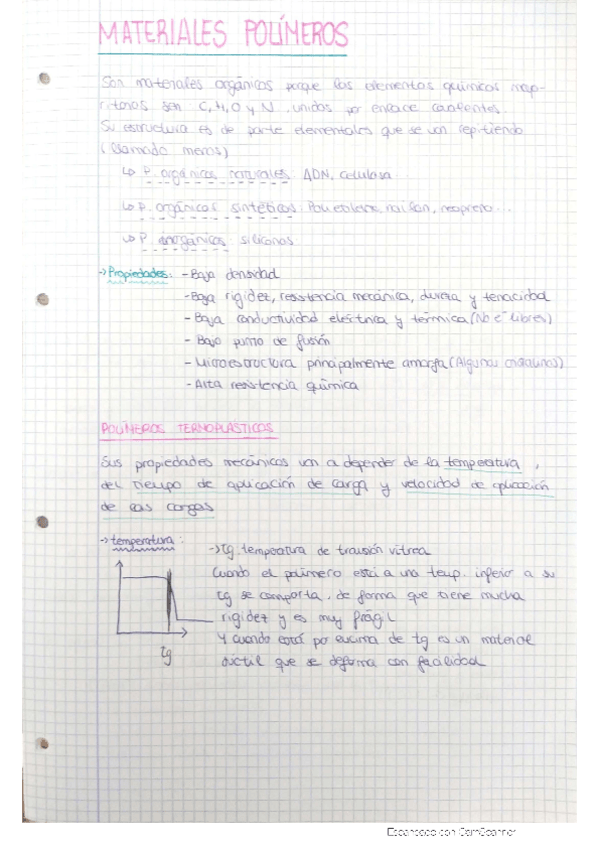 MATERIALES POLÍMEROS
Son materiales orgánicos porque los elementos químicos mayo-
ritarios son C, H, O y N unidos por enlace covalentes.
Su estructura es de parte elementales que se van repitiendo
(llamado meros)
↳ P. orgánicos naturales: ADN, celulosa...
↳ P. orgánicos sintéticos: Polietileno, nailon, neopreno...
↳ P. inorgánicos: siliconas
→ Propiedades: - Baja densidad
- Baja rigidez, resistencia mecánica, dureza y tenacidad
- Baja conductividad eléctrica y térmica (No e⁻ libres)
- Bajo punto de fusión
- Microestructura principalmente amorfa (Algunos cristalinos)
- Alta resistencia química
POLÍMEROS TERMOPLÁSTICOS
Sus propiedades mecánicas van a depender de la temperatura,
del tiempo de aplicación de carga y velocidad de aplicación
de las cargas
→ temperatura:
→ Tg: temperatura de transión vítrea
Cuando el polímero está a una temp. inferior a su
tg se comporta, de forma que tiene mucha
rigidez y es muy frágil
Y cuando está por encima de tg es un material
dúctil que se deforma con facilidad
tg
Escaneado con CamScanner